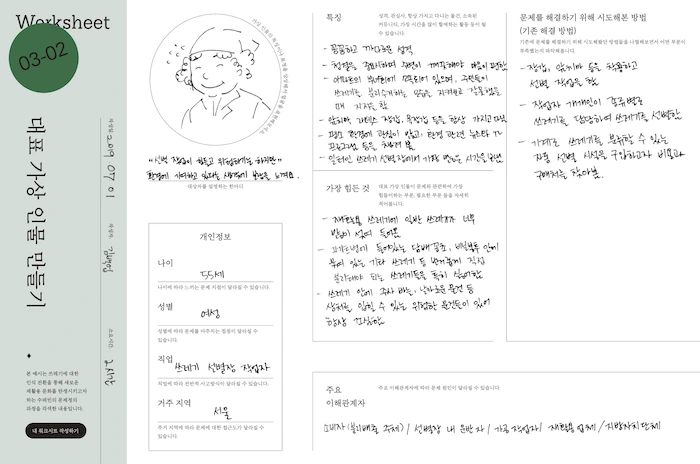 Worksheet
03-02
대표 가상 인물 만들기
작성일
2019 07 01
작성자
소요시간
2시간
본 예시는 쓰레기에 대한
인식 전환을 통해 새로운
재활용 문화를 탄생시키고자
하는 수퍼빈의 문제정의
과정을 각색한 내용입니다.
내 워크시트 작성하기
"선별 작업이 힘들고 위험하기는 하지만
환경에 기여하고 있다는 생각에 보람을 느껴요."
대상자를 설명하는 한마디
개인정보
나이
55세
나이에 따라 느끼는 문제 지점이 달라질 수 있습니다.
성별
여성
성별에 따라 문제를 마주하는 점점이 달라질 수
있습니다.
직업
쓰레기 선별장 작업자
직업에 따라 전반적 사고방식이 달라질 수 있습니다.
거주 지역
서울
주거 지역에 따라 문제에 대한 접근도가 달라질 수
있습니다.
특징
성격, 관심사, 항상 가지고 다니는 물건, 소속된
커뮤니티, 가장 시간을 많이 할애하는 활동 등이 될
수 있습니다.
- 꼼꼼하고 까다로운 성격
- 청결을 중시하며 주변이 깨끗해야 마음이 편함
쓰레기를 분리수거하는 모습을 지켜보고 잘못했을
때 지적을 함
- 평소 환경에 관심이 많고, 환경 관련 뉴스나 TV
프로그램 등을 챙겨 봄
- 일터인 쓰레기 선별장에서 가장 많은 시간을 보냄
가장 힘든 것
대표 가상 인물이 문제와 관련하여 가장
힘들어하는 부분, 필요한 부분 등을 자세히
적어봅니다.
- 재활용 쓰레기에 일반 쓰레기가 너무
많이 섞여 들어옴
묶여 있는 기타 쓰레기 등 번거롭게 직접
분리해야 되는 쓰레기들을 특히 싫어함
- 쓰레기 안에 주사 바늘, 날카로운 물건 등
상처를 입힐 수 있는 위험한 물건들이 있어
항상 조심함
문제를 해결하기 위해 시도해본 방법
(기존 해결 방법)
기존에 문제를 해결하기 위해 시도해봤던 방법들을 나열해보면서 어떤 부분이
부족했는지 파악해봅니다.
- 장갑, 앞치마 등을 착용하고
선별 작업을 함
- 작업자 개개인이 종류별로
쓰레기를 담당하여 쓰레기를 선별함
- 기계로 쓰레기를 분류할 수 있는
자동 선별 시설을 구입하고자 비용과
구매처를 찾아봄.
주요
이해관계자
주요 이해관계자에 따라 문제 원인이 달라질 수 있습니다.
소비자(분리배출 주체) / 선별장 내 운반자 / 가공 작업자 / 재활용 업체 / 지방자치단체